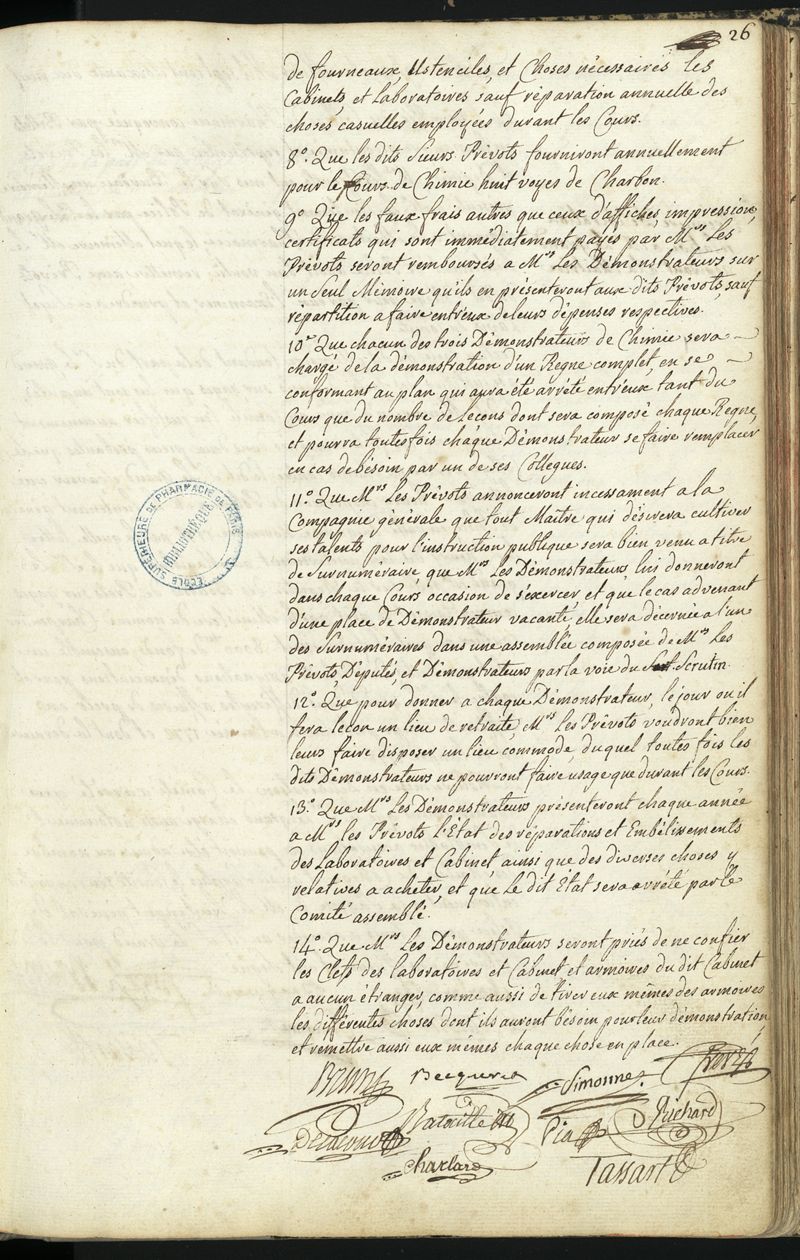 26
de fourneaux, Ustenciles, et Choses nécessaires les
Cabinets, et Laboratoires sauf réparation annuelle des
choses casuelles employées durant les Cours.
8.° Que les dits Sieurs Prévots fourniront annuellement
pour le Cours de Chimie huit voyes de Charbon.
9.° Que les faux frais autres que ceux d'affiches, impression,
certificats qui sont immédiatement payés par Mrs Les
Prévots seront remboursés a Mrs Les Démonstrateurs sur
un Seul Mémoire qu'ils en présenteront aux dits Prévots, sauf
répartition a faire entr'eux de leurs dépenses respectives.
10.° Que chacun des trois Démonstrateurs de Chimie sera
chargé de la démonstration d'un Regne complet, en se
conformant au plan qui aura été arrêté entr'eux tant du
Cours que du nombre de Lecons dont sera composé chaque Regne,
et pourra toutesfois chaque Démonstrateur se faire remplacer
en cas de bésoin par un de ses Collegues.
11.° Que Mrs Les Prévots annonceront incessament a la
Compagnie générale que tout Maître qui désirera cultiver
ses talents pour l'instruction publique sera bien venu a titre
de Surnuméraire, que Mrs Les Démonstrateurs lui donneront
dans chaque Cours occasion de s'exercer, et que le cas advenant
d'une place de Démonstrateur vacante, elle sera décernée a l'un
des Surnuméraires dans une assemblée composée de Mrs Les
Prévots, Députés, et Démonstrateurs par la voie du Scrutin.
12.° Que pour donner a chaque Démonstrateur, le jour ou il
fera lecon un lieu de retraite, Mrs Les Prévots voudront bien
leurs faire disposer un lieu commode, duquel toutes fois les
dits Démonstrateurs ne pourront faire usage que durant les Cours.
13.° Que Mrs Les Démonstrateurs présenteront chaque année
a Mrs les Prévots l'État des réparations et Embélissements
des Laboratoires et Cabinet ainsi que des diverses choses y
relatives a acheter, et que Le dit Etat sera arrété par le
Comité assemblé.
14.° Que Mrs Les Démonstrateurs seront priés de ne confier
les Clefs des laboratoires et Cabinet et armoires du dit Cabinet
a aucun étranger, comme aussi de tirer eux mêmes des armoires
les différentes choses dont ils auront bésoin pour leur démonstration,
et remettre aussi eux mêmes chaque chose en place.
Brun Becqueret Simonnet
Bataille Pia Richard
Charlard Tassart
ÉCOLE SUPÉRIEURE DE PHARMACIE DE PARIS
BIBLIOTHÈQUE